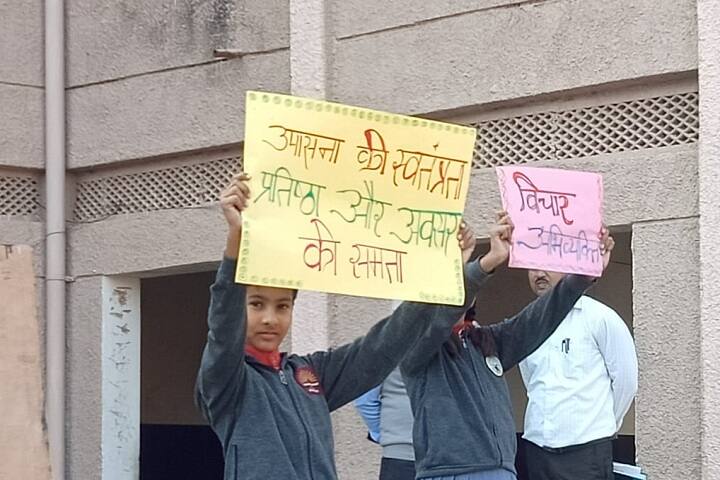 उपासना की स्वतंत्रता
प्रतिष्ठा और अवसर
की समता
विचार
अभिव्यक्ति